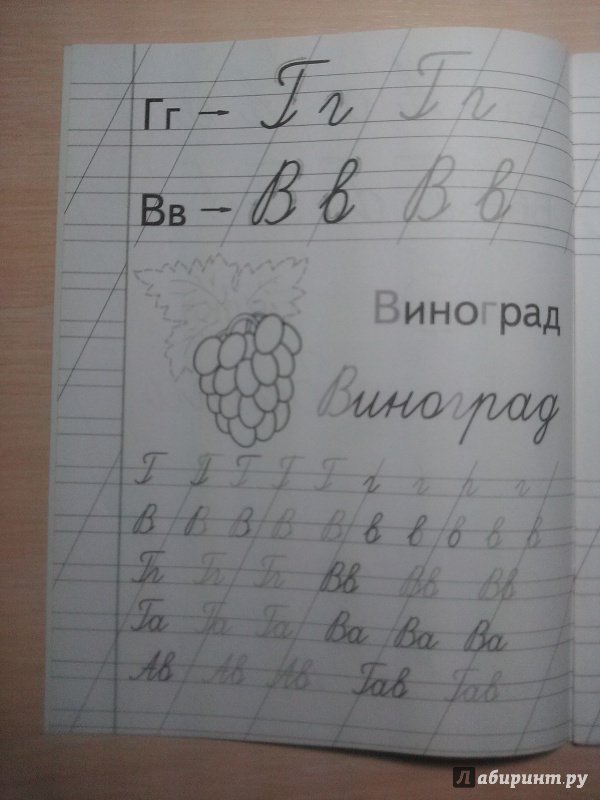 Гг → Гг Гг
Вв → Вв Вв
Виноград
Виноград
Г Г Г Г Г г г г г
В В В В В в в в в в
Гг Гг Гг Вв Вв Вв
Га Га Га Ва Ва Ва
Ав Ав Ав Гав Гав
Лабиринт.ру